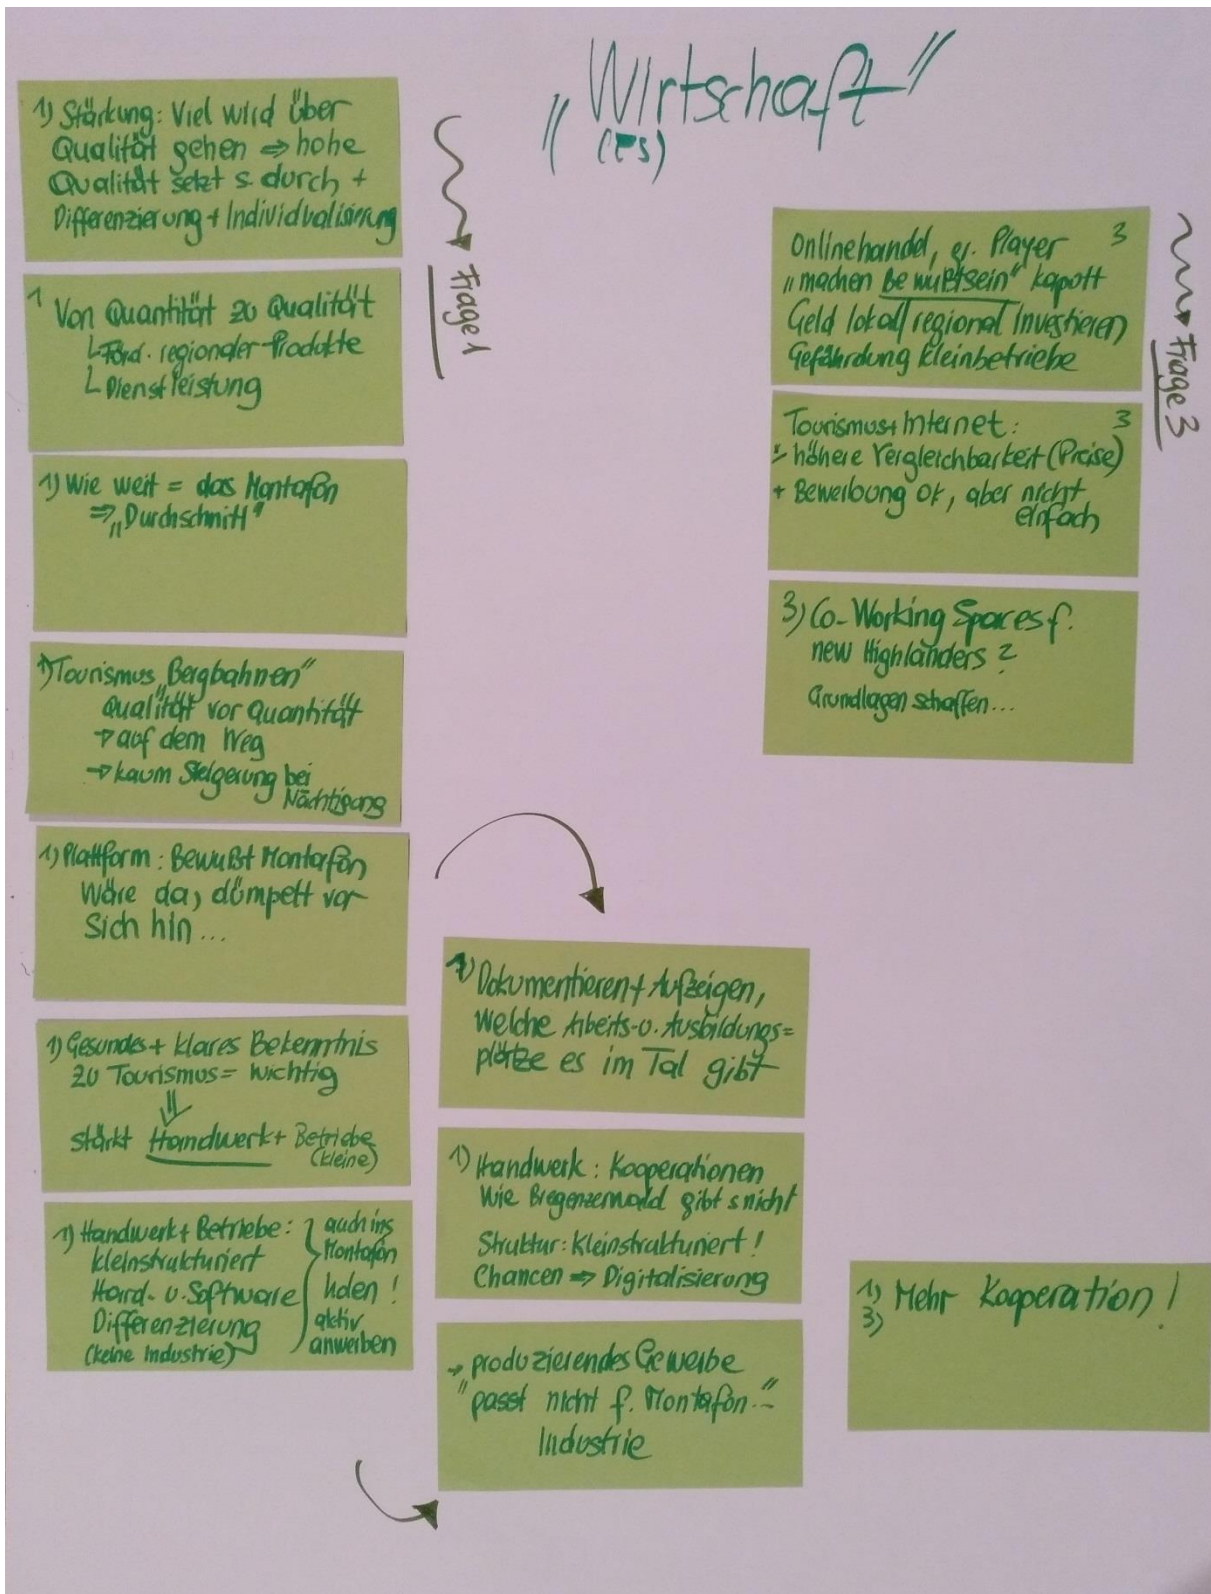 „Wirtschaft"
(ES)
1) Stärkung: Viel wird über
Qualität gehen ⇒ hohe
Qualität setzt s. durch +
Differenzierung + Individualisierung
Frage 1
1 Von Quantität zu Qualität
└ Förd. regionaler Produkte
└ Dienstleistung
1) Wie weit = das Montafon
⇒ „Durchschnitt"
1) Tourismus „Bergbahnen"
Qualität vor Quantität
→ auf dem Weg
→ kaum Steigerung bei
Nächtigung
1) Plattform: Bewußt Montafon
Wäre da, dümpelt vor
sich hin ...
1) Gesundes + klares Bekenntnis
zu Tourismus = wichtig
⇓
stärkt Handwerk + Betriebe
(kleine)
1) Handwerk + Betriebe:
kleinstrukturiert
Hard- u. Software
Differenzierung
(keine Industrie)
auch ins
Montafon
holen!
aktiv
anwerben
1) Dokumentieren + Aufzeigen,
Welche Arbeits- u. Ausbildungs=
plätze es im Tal gibt
1) Handwerk: Kooperationen
Wie Bregenzerwald gibt s nicht
Struktur: Kleinstrukturiert!
Chancen ⇒ Digitalisierung
→ produzierendes Gewerbe
"passt nicht f. Montafon.."
Industrie
Onlinehandel, gr. Player 3
„machen Bewußtsein" kapott
Geld lokal/regional investieren
Gefährdung Kleinbetriebe
Frage 3
Tourismus + Internet: 3
- höhere Vergleichbarkeit (Preise)
+ Bewerbung ok, aber nicht
einfach
3) Co-Working Spaces f.
new Highlanders?
Grundlagen schaffen...
1) Mehr Kooperation!
3)